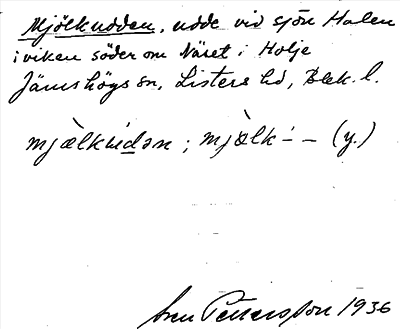 Mjölkudden, udde vid sjön Halen
i viken söder om Näset i Holje
Jämshögs sn, Listers hd, Blek. l.
mjælkùdən ; mjælk ́ – (y.)
Sven Pettersson 1936